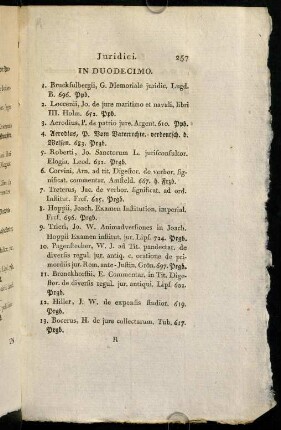 Juridici. 257
IN DUODECIMO.
1. Bruckfulbergii, G. Memoriale juridic. Lugd.
B. 696. Ppb.
2. Loccenii, Jo. de jure maritimo et navali, libri
III. Holm. 652. Ppb.
3. Aerodius, P. de patrio jure. Argent. 610. Ppb.
4. Aerodius, P. Vom Vaterrecht, verdeutsch. d.
683. Prgb.
5. Roberti, Jo. Sanctorum L. jurisconsultor.
Elogia, Leod. 632. Prgb.
6. Corvini, Arn. ad tit. Digestor. de verbor. sig-
nificat. commentar. Amsteld. 667. h. Frzb.
7. Treterus, Jac. de verbor. significat. ad ord.
Institut. Fref. 695. Prgb.
8. Hoppii, Joach. Examen Institution. imperial.
Fref. 696. Prgb.
9. Jo. W. Animadversiones in Joach.
Hoppii Examen institut. jur. Lipf. 724. Prgb.
10. Pagenstecher, W. J. ad Tit. pandectar. de
diversis regul. jur. antiq. c. oratione de pri-
mordiis jur. Rom. ante-Justin. Grön. 697. Prgb.
11. Bronckhorstii, E. Commentar. in Tit. Dige-
stor. de diversis regul. jur. antiqui. Lips.
Prgb.
12. Hilier, J. W. de expensis studior. 619.
Prgb.
13. Bocerus, H. de jure collectarum. Tub. 617.
Prgb.
R